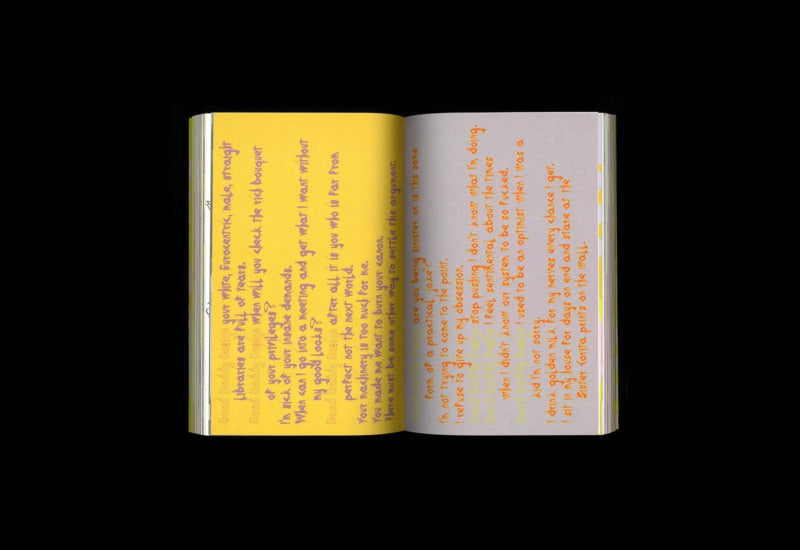 Dead Daddy Design your white, Eurocentric, male, straight
Libraries are full of tears.
Dead Daddy Design when will you check the rich bouquet
of your privileges?
I'm sick of your insane demands.
When can I go into a meeting and get what I want without
my good looks?
Dead Daddy Design after all it is you who is far from
perfect not the next world.
Your machinery is too much for me.
You made me want to burn your canon.
There must be some other way to settle this argument.
are you being sinister or is this some
form of a practical joke?
I'm not trying to come to the point.
I refuse to give up my obsession.
stop pushing I don't know what I'm doing.
I feel sentimental about the times
when I didn't know our system to be so fucked.
I used to be an optimist when I was a
kid I'm not sorry.
I drink golden milk for my nerves every chance I get.
I sit in my house for days on end and stare at the
Sister Corita prints on the wall.